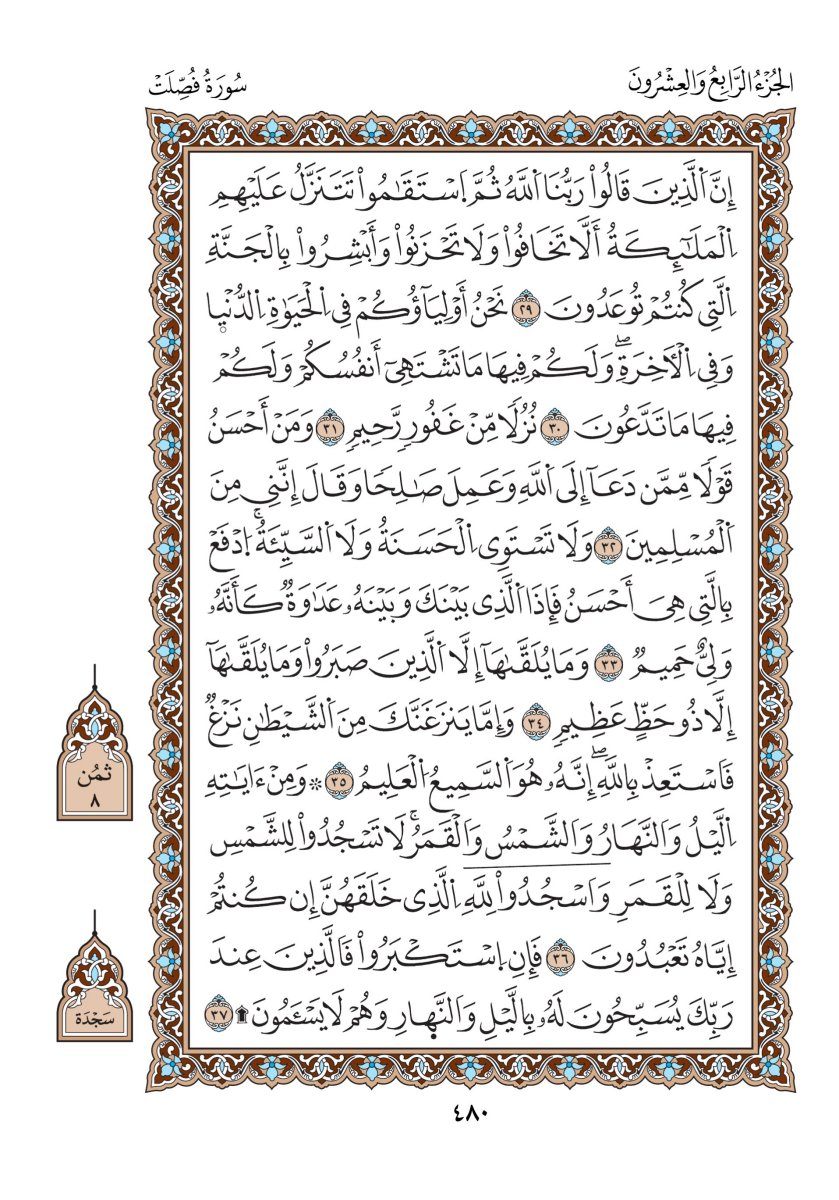 الجُزْءُ الرَّابِعُ وَالعِشْرُونَ
سُورَةُ فُصِّلَتْ
إِنَّ اَ۬لذِينَ قَالُواْ رَبُّنَا اَ۬للَّهُ ثُمَّ اَ۪سْتَقَٰمُواْ تَتَنَزَّلُ عَلَيْهِمِ
اِ۬لْمَلَٰٓئِكَةُ أَلَّا تَخَافُواْ وَلَا تَحْزَنُواْ وَأَبْشِرُواْ بِالْجَنَّةِ
اِ۬لتِي كُنتُمْ تُوعَدُونَ ٢٩ نَحْنُ أَوْلِيَآؤُكُمْ فِي اِ۬لْحَيَوٰةِ اِ۬لدُّنْي۪ا
وَفِي اِ۬لْأٓخِرَةِۖ وَلَكُمْ فِيهَا مَا تَشْتَهِيٓ أَنفُسُكُمْ وَلَكُمْ
فِيهَا مَا تَدَّعُونَ ٣٠ نُزُلًا مِّنْ غَفُورٍ رَّحِيمٍ ٣١ وَمَنْ أَحْسَنُ
قَوْلًا مِّمَّن دَعَآ إِلَى اَ۬للَّهِ وَعَمِلَ صَٰلِحًا وَقَالَ إِنَّنِي مِنَ
اَ۬لْمُسْلِمِينَ ٣٢ وَلَا تَسْتَوِي اِ۬لْحَسَنَةُ وَلَا اَ۬لسَّيِّئَةُۚ اُ۪دْفَعْ
بِالتِي هِيَ أَحْسَنُ فَإِذَا اَ۬لذِي بَيْنَكَ وَبَيْنَهُۥ عَدَٰوَةٌ كَأَنَّهُۥ
وَلِيٌّ حَمِيمٌ ٣٣ وَمَا يُلَقَّىٰهَآ إِلَّا اَ۬لذِينَ صَبَرُواْ وَمَا يُلَقَّىٰهَآ
إِلَّا ذُو حَظٍّ عَظِيمٍ ٣٤ وَإِمَّا يَنزَغَنَّكَ مِنَ اَ۬لشَّيْطَٰنِ نَزْغٌ
فَاسْتَعِذْ بِاللَّهِۖ إِنَّهُۥ هُوَ اَ۬لسَّمِيعُ اُ۬لْعَلِيمُ ٣٥ ۞ وَمِنْ ءَايَٰتِهِ
اِ۬ليْلُ وَالنَّهَارُ وَالشَّمْسُ وَالْقَمَرُۚ لَا تَسْجُدُواْ لِلشَّمْسِ
وَلَا لِلْقَمَرِ وَاسْجُدُواْ لِلهِ اِ۬لذِي خَلَقَهُنَّ إِن كُنتُمْ
إِيَّاهُ تَعْبُدُونَ ٣٦ فَإِنِ اِ۪سْتَكْبَرُواْ فَالذِينَ عِندَ
رَبِّكَ يُسَبِّحُونَ لَهُۥ بِاليْلِ وَالنَّه۪ارِ وَهُمْ لَا يَسْـَٔمُونَ ۩ ٣٧
ثمُن
٨
سَجْدَة
٤٨٠